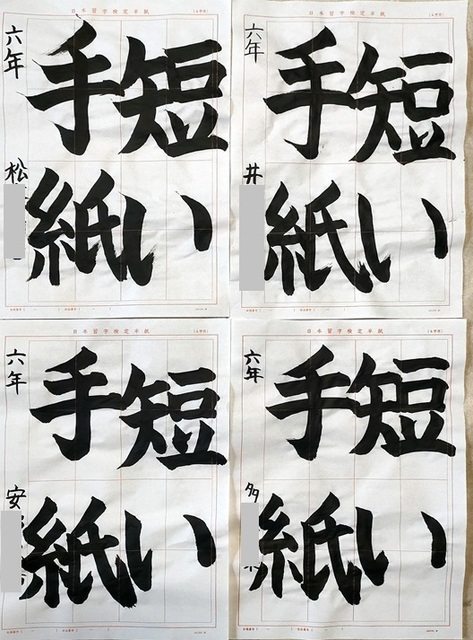 日本習字検定半紙
短い
手紙
六年
松
日本習字検定半紙
短い
手紙
六年
井
日本習字検定半紙
短い
手紙
六年
安
日本習字検定半紙
短い
手紙
六年
多